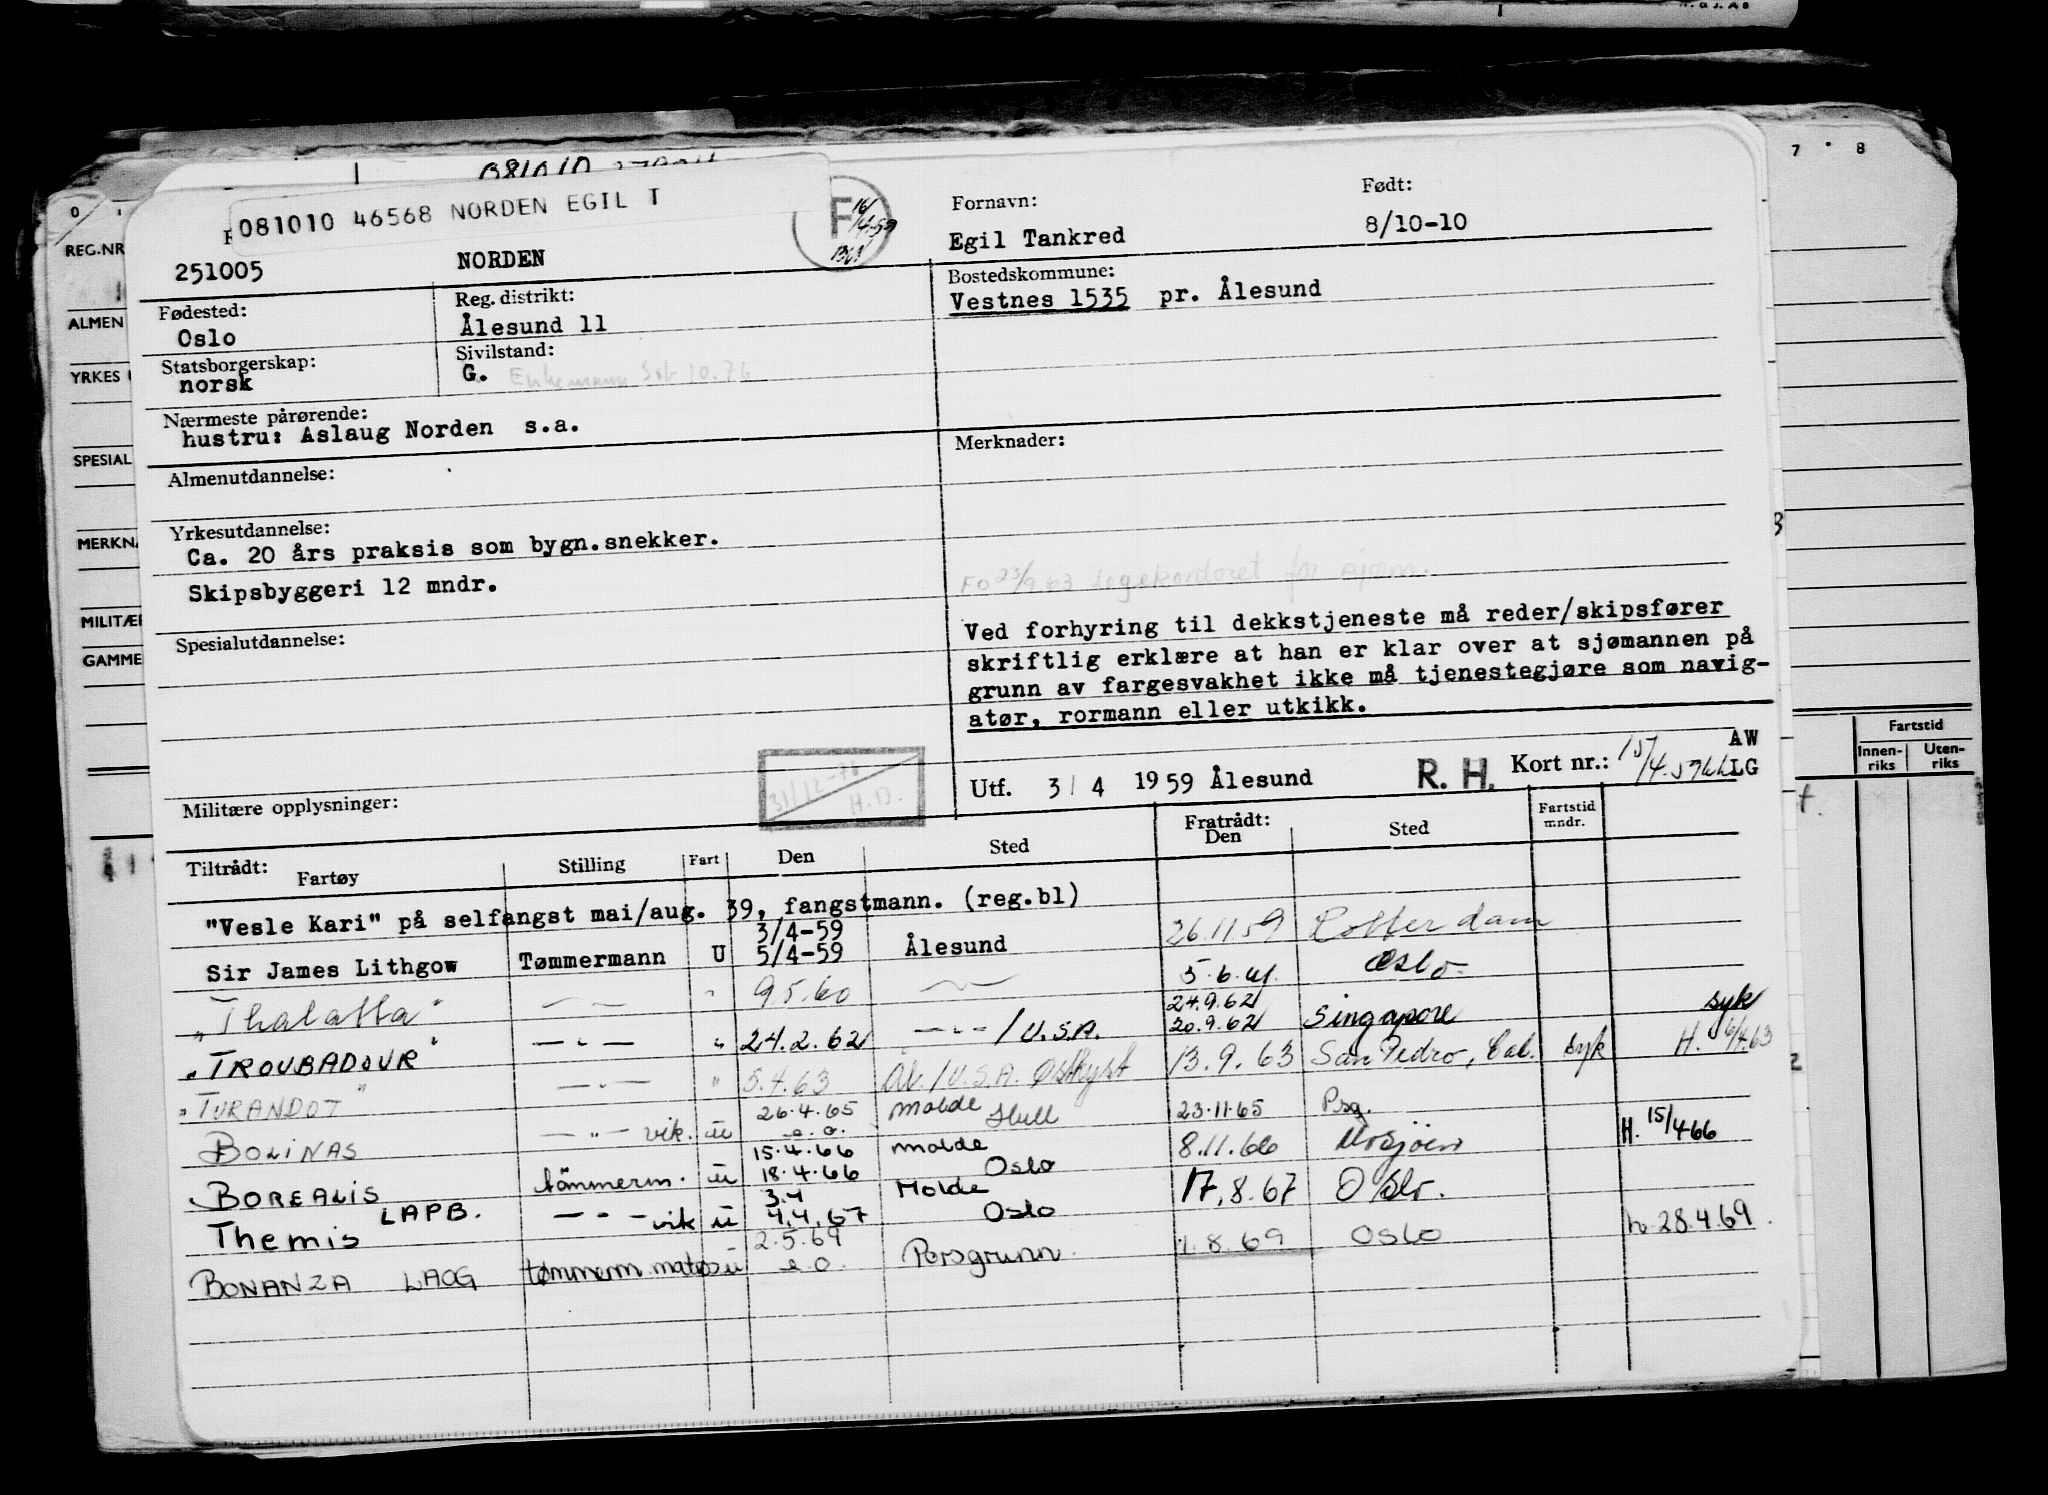 081010 46568 NORDEN EGIL T
F
Fornavn:
Født:
251005
NORDEN
Egil Tankred
8/10-10
Fødested:
Oslo
Reg. distrikt:
Ålesund 11
Bostedskommune:
Vestnes 1535 pr. Ålesund
Statsborgerskap:
norsk
Sivilstand:
G. Enkemann Sst 10.76
Nærmeste pårørende:
hustru: Aslaug Norden s.a.
Almenutdannelse:
Merknader:
Yrkesutdannelse:
Ca. 20 års praksis som bygn.snekker.
Skipsbyggeri 12 mndr.
Fo 23/9.63 legekontoret for sjøm.
Spesialutdannelse:
Ved forhyring til dekkstjeneste må reder/skipsfører
skriftlig erklære at han er klar over at sjømannen på
grunn av fargesvakhet ikke må tjenestegjøre som navig-
atør, rormann eller utkikk.
31/12-76
H.D.
Utf. 3/4 1959 Ålesund R. H. Kort nr.:
AW
LG
Militære opplysninger:
Tiltrådt:
Fartøy Stilling Fart Den Sted Fratrådt: Den Sted Fartstid mndr.
"Vesle Kari" på selfangst mai/aug. 39, fangstmann. (reg.bl)
3/4-59
Sir James Lithgow Tømmermann U 5/4-59 Ålesund 26.11.59 Rotterdam
"Thalatta" — — " 9.5.60 — 5.6.61. Oslo.
24.9.62
"TROUBADOUR" — " — " 24.2.62 — " — /U.S.A. 20.9.62 Singapore syk
"TURANDOT" — " — " 5.4.63 Ål./U.S.A. Østkyst 13.9.63 San Pedro, Cal. syk H. 6/4.63
26.4.65 Molde
BOLINAS — " — vik. u e.o. Hull 23.11.65 Psg.
15.4.66 Molde
BOREALIS tömmerm. u 18.4.66 Oslo 8.11.66 Mosjøen H. 15/4 66
3.4 Molde
Themis LAPB. — " — vik u 4.4.67 Oslo 17.8.67 Oslo.
2.5.69
BONANZA LAOG tømmerm. matros u e.o. Porsgrunn 1.8.69 Oslo h. 28.4.69.
REG.NR
ALMEN
YRKES
SPESIAL
MERKNA
MILITÆR
GAMME
7 8
Fartstid
Innen-
riks
Uten-
riks